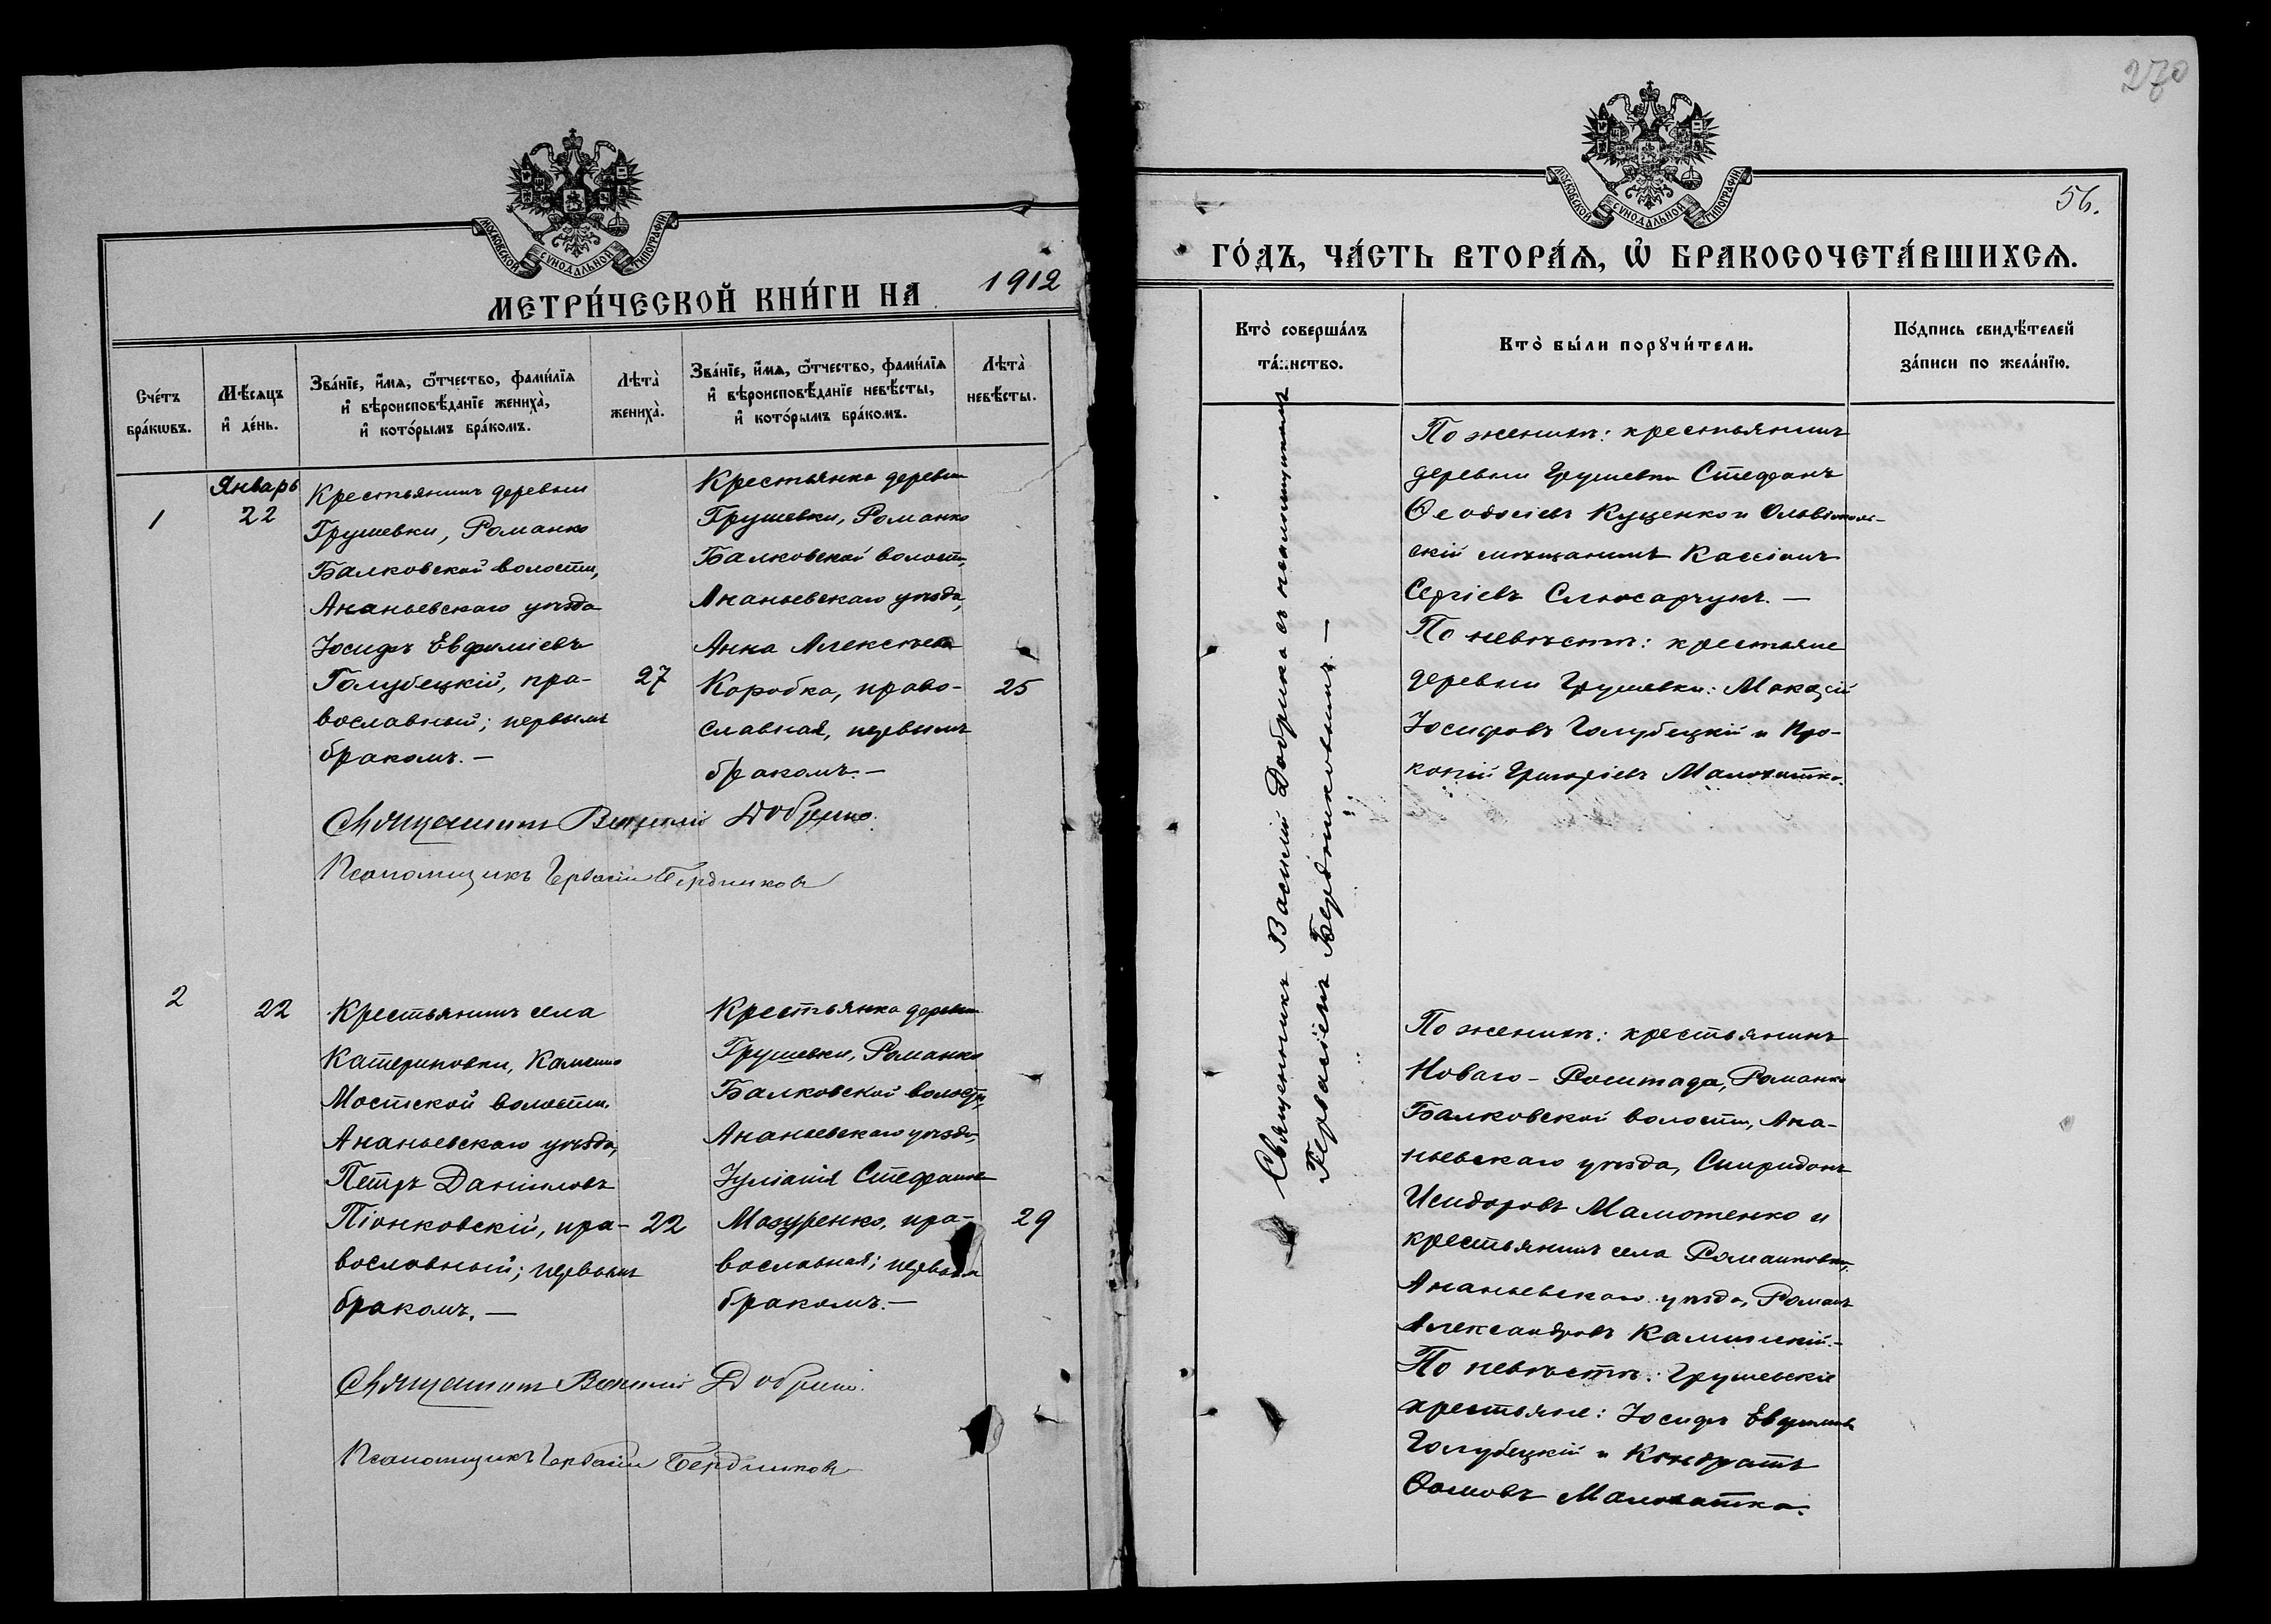 МОСКОВСКОЙ СѴНОДАЛЬНОЙ ТИПОГРАФІИ
МЕТРИ́ЧЕСКОЙ КНИ́ГИ НА 1912
Сче́тъ бра́кѡвъ.
Мѣ́сѧцъ и҆ де́нь.
Зва́нїе, и҆́мѧ, ѻ҆́тчество, фами́лїѧ
и҆ вѣроисповѣ́данїе жениха̀,
и҆ кото́рымъ бра́комъ.
Лѣта̀ жениха̀.
Зва́нїе, и҆́мѧ, ѻ҆́тчество, фами́лїѧ
и҆ вѣроисповѣ́данїе невѣ́сты,
и҆ кото́рымъ бра́комъ.
Лѣта̀ невѣ́сты.
1
Январь
22
Крестьянинъ деревни
Грушевки, Романко
Балковской волости,
Ананьевскаго уѣзда
Іосифъ Евфиміевъ
Голубецкій, пра-
вославный; первымъ
бракомъ. —
27
Крестьянка деревни
Грушевки, Романко
Балковской волости,
Ананьевскаго уѣзда,
Анна Алексѣева
Коробка, право-
славная, первымъ
бракомъ. —
25
Священникъ Василій Добрико.
Псаломщикъ Гервасій Бердниковъ
2
22
Крестьянинъ села
Катериновки, Каменно
Мостской волости,
Ананьевскаго уѣзда,
Петръ Даніиловъ
Піонковскій, пра-
вославный; первымъ
бракомъ. —
22
Крестьянка деревни
Грушевки, Романко
Балковской волости,
Ананьевскаго уѣзда,
Іуліанія Стефанова
Мазуренко, пра-
вославная; первымъ
бракомъ. —
29
Священникъ Василій Добрико.
Псаломщикъ Гервасій Бердниковъ
270
МОСКОВСКОЙ СѴНОДАЛЬНОЙ ТИПОГРАФІИ
56.
ГО́ДЪ, ЧА́СТЬ ВТОРА́Ѧ, Ѡ҆ БРАКОСОЧЕТА́ВШИХСѦ.
Кто̀ соверша́лъ
та́инство.
Кто̀ бы́ли порꙋчи́тели.
По́дпись свидѣ́телей
за́писи по жела́нїю.
Священникъ Василій Добрико съ псаломщикомъ
Гервасіемъ Бердниковымъ. —
По женихѣ: крестьянинъ
деревни Грушевки Стефанъ
Ѳеодосіевъ Куценко и Ольвіополь-
скій мѣщанинъ Кассіанъ
Сергіевъ Слюсарчукъ. —
По невѣстѣ: крестьяне
деревни Грушевки: Мокій
Іосифовъ Голубецкій и Про-
копій Григоріевъ Малохатко.
По женихѣ: крестьянинъ
Новаго-Роштада, Романко
Балковской волости, Ана-
ньевскаго уѣзда, Спиридонъ
Исидоровъ Мамотенко и
крестьянинъ села Романовки,
Ананьевскаго уѣзда, Романъ
Александровъ Калинскій. —
По невѣстѣ: Грушевскіе
крестьяне: Іосифъ Евфиміевъ
Голубецкій и Кондратъ
Ѳомовъ Малохатко.